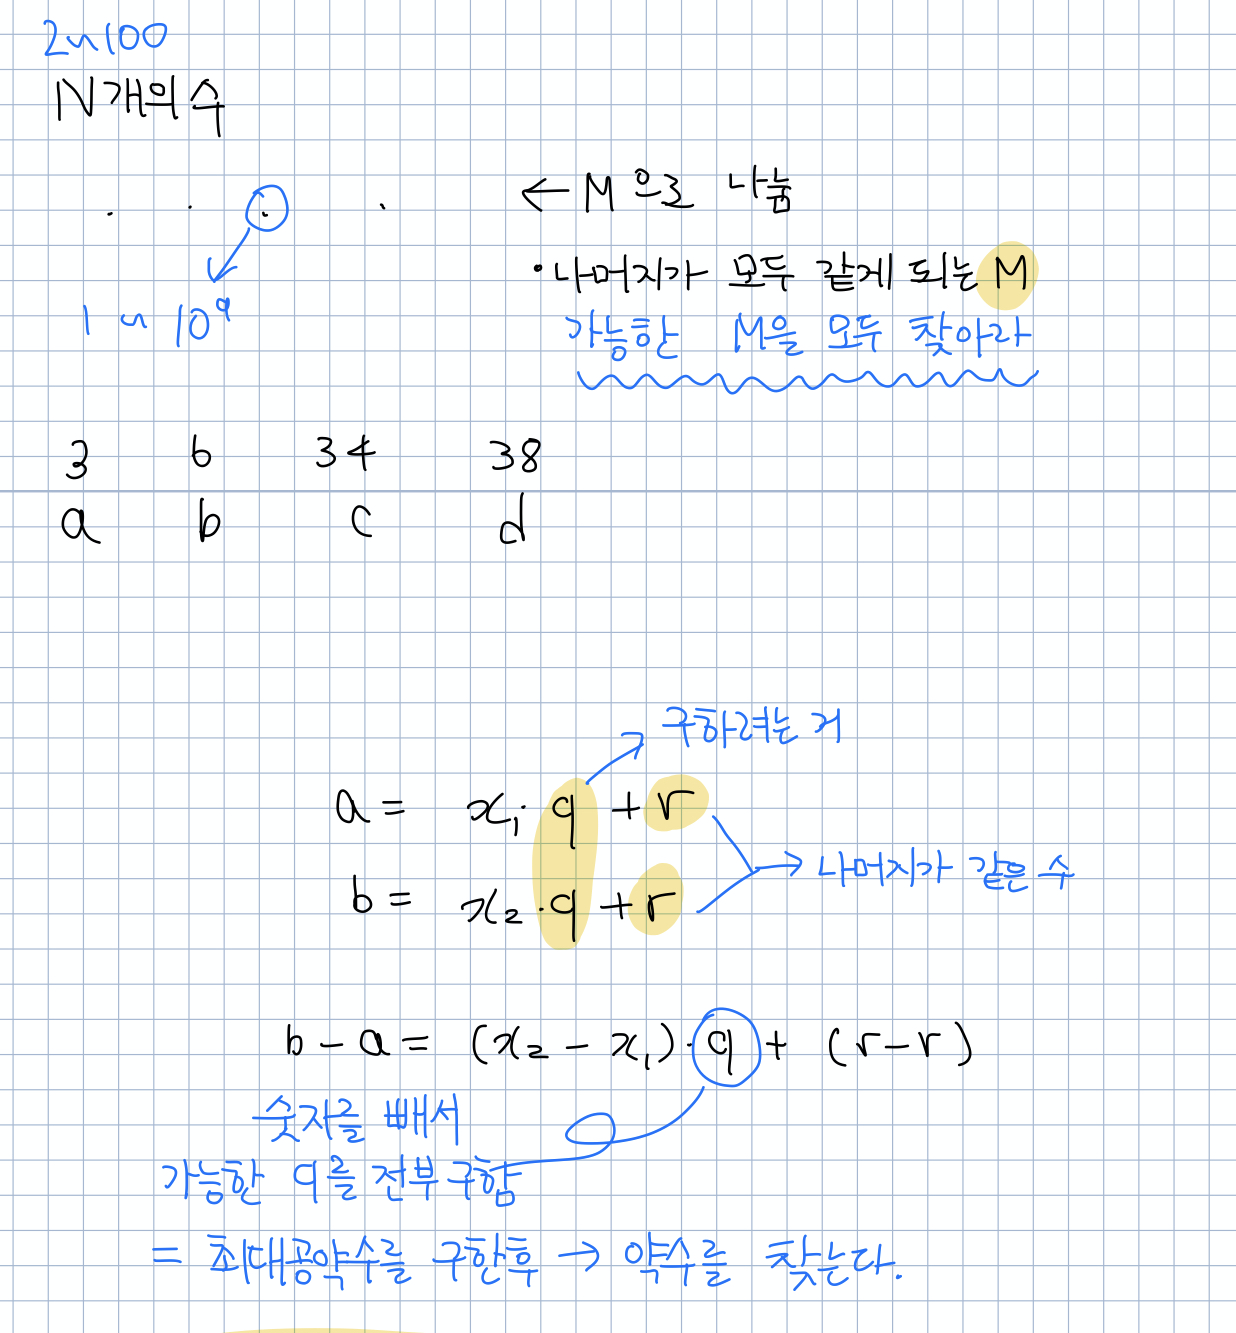 2~100
N개의 수
← M으로 나눔
· 나머지가 모두 같게 되는 M
1 ~ 10⁹
가능한 M을 모두 찾아라
3 6 34 38
a b c d
구하려는 거
a = x₁·q + r
b = x₂·q + r
→ 나머지가 같은 수
b - a = (x₂ - x₁)·q + (r-r)
숫자를 빼서
가능한 q를 전부 구함
= 최대공약수를 구한후 → 약수를 찾는다.